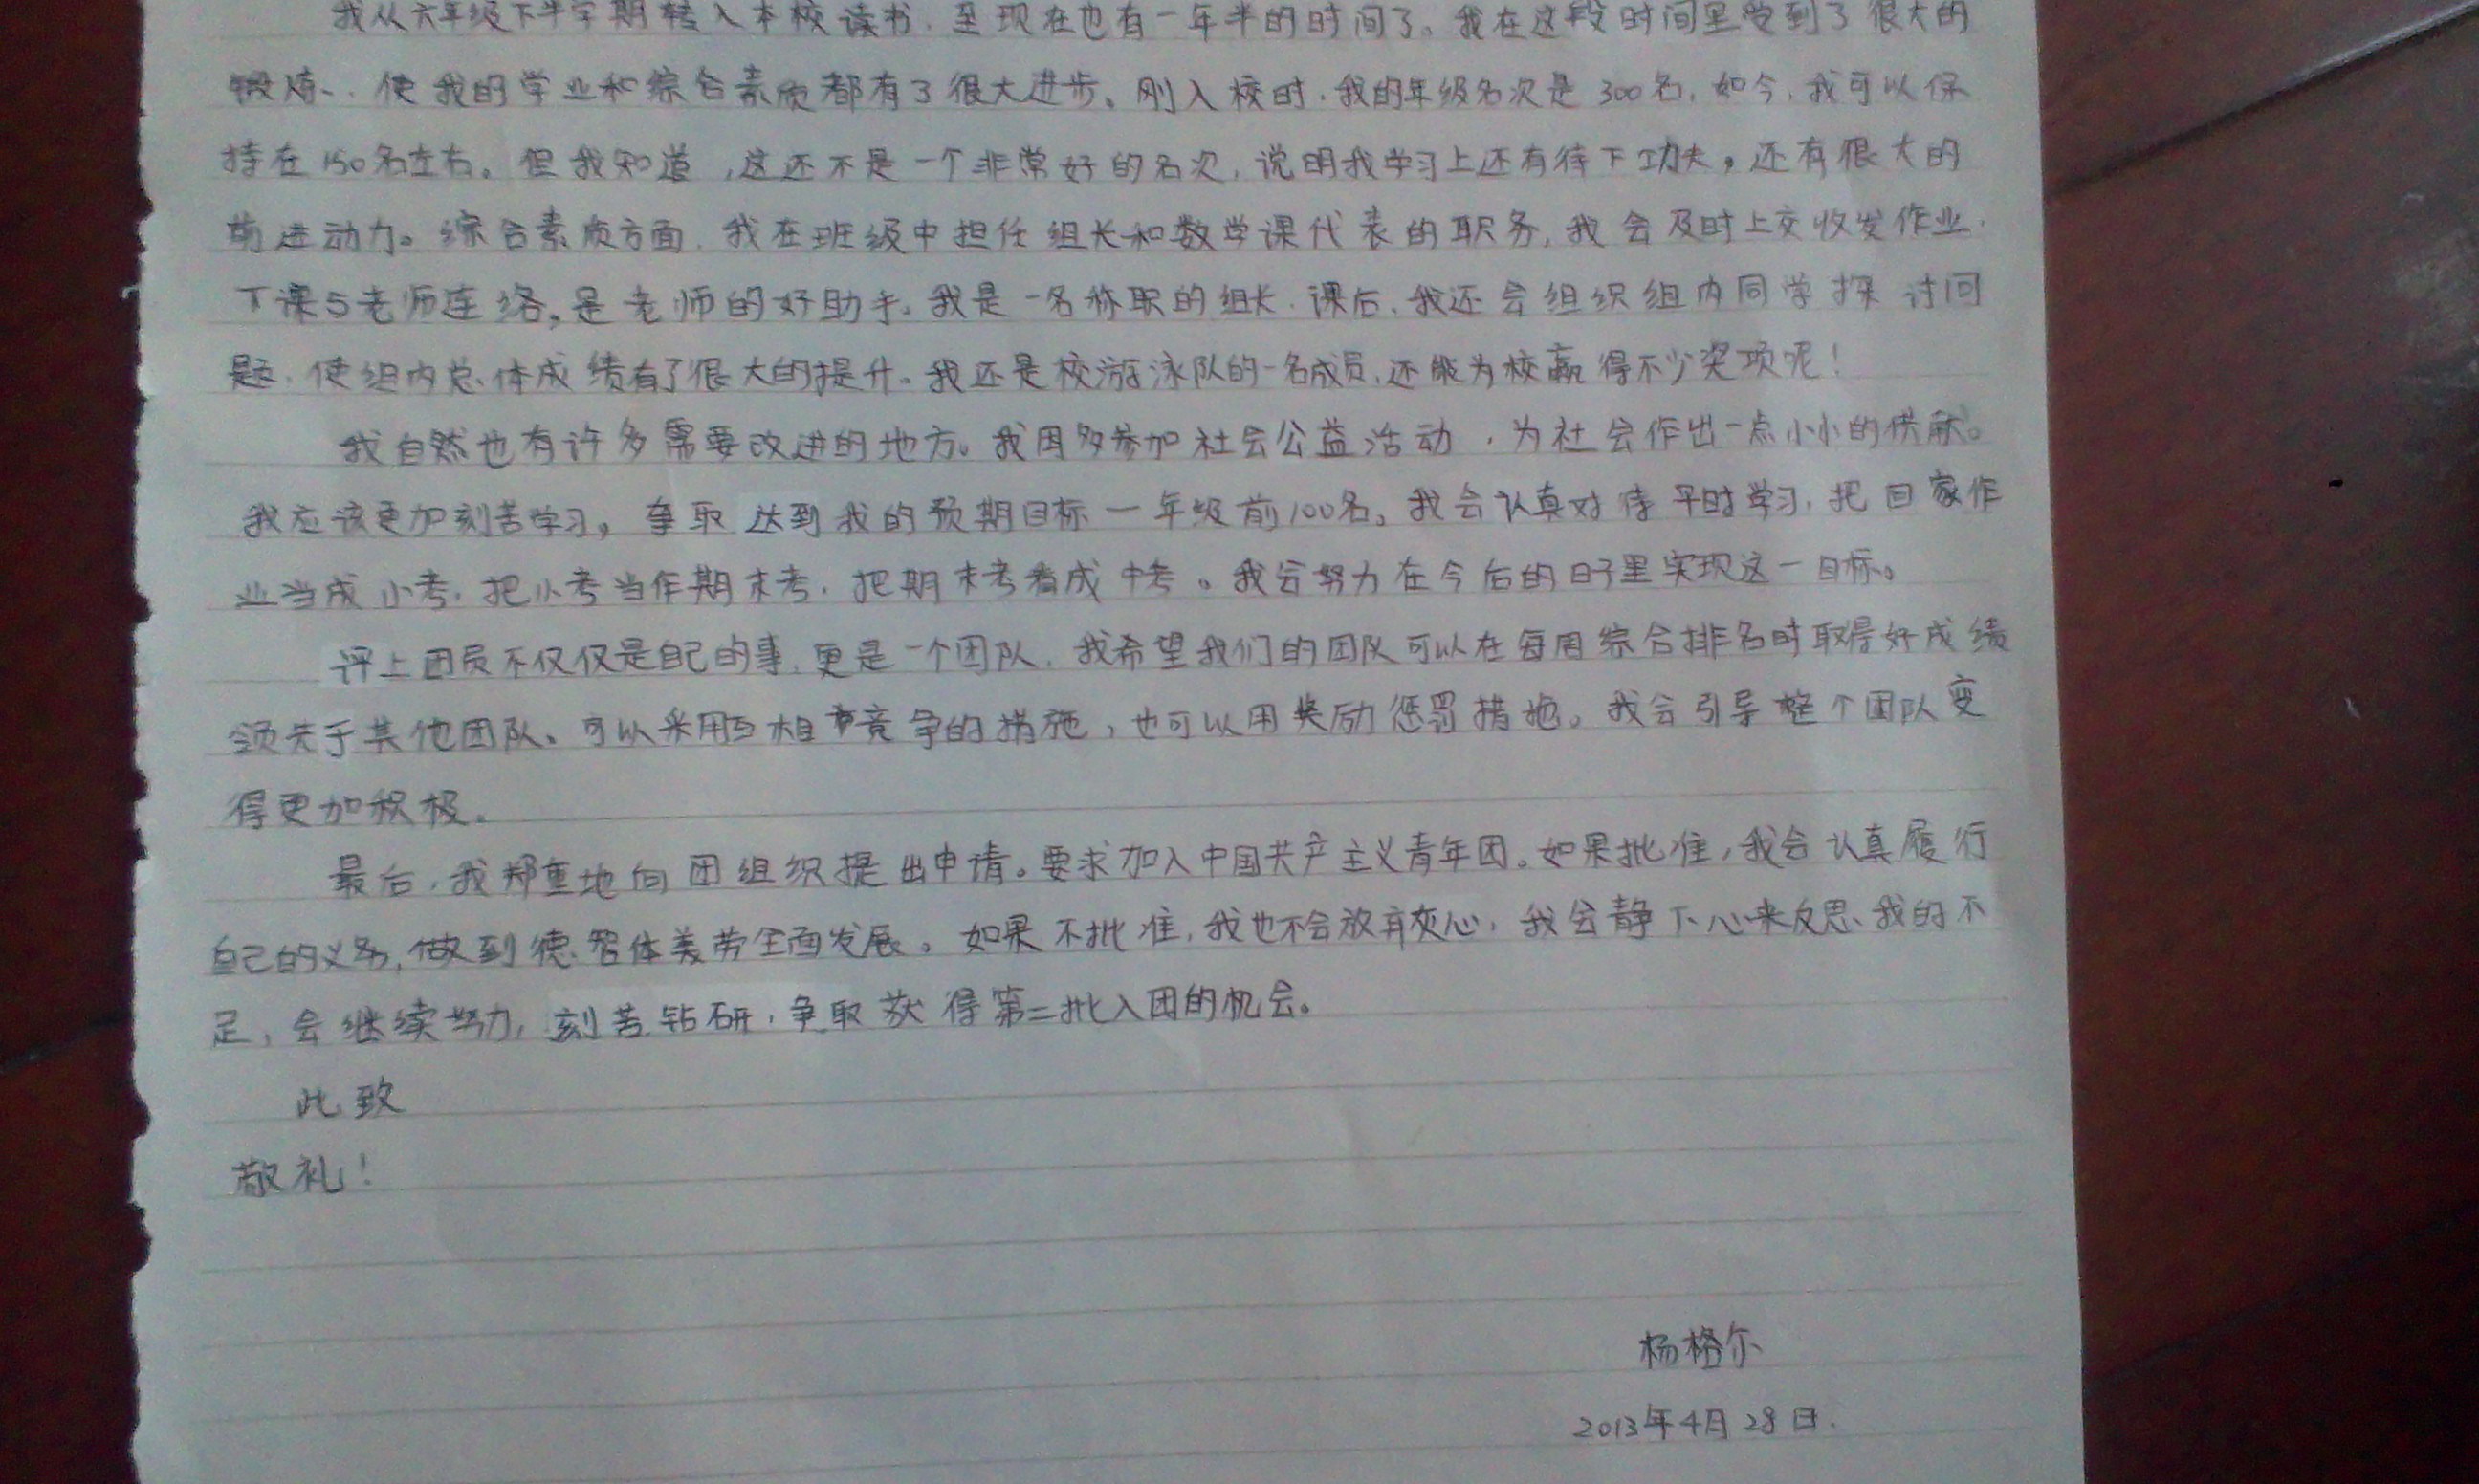 我从六年级下半学期转入本校读书,至现在也有一年半的时间了。我在这段时间里受到了很大的
锻炼,使我的学业和综合素质都有了很大进步。刚入校时,我的年级名次是300名,如今,我可以保
持在150名左右。但我知道,这还不是一个非常好的名次,说明我学习上还有待下功夫,还有很大的
前进动力。综合素质方面,我在班级中担任组长和数学课代表的职务,我会及时上交收发作业,
下课与老师连络,是老师的好助手。我是一名称职的组长,课后,我还会组织组内同学探讨问
题,使组内总体成绩有了很大的提升。我还是校游泳队的一名成员,还能为校赢得不少奖项呢!
我自然也有许多需要改进的地方。我因多参加社会公益活动,为社会作出一点小小的供献。
我应该更加刻苦学习,争取达到我的预期目标一年级前100名。我会认真对待平时学习,把回家作
业当成小考,把小考当作期末考,把期末考看成中考。我会努力在今后的日子里实现这一目标。
评上团员不仅仅是自己的事,更是一个团队,我希望我们的团队可以在每周综合排名时取得好成绩
领先于其他团队。可以采用互相竞争的措施,也可以用奖励惩罚措施。我会引导整个团队变
得更加积极。
最后,我郑重地向团组织提出申请。要求加入中国共产主义青年团。如果批准,我会认真履行
自己的义务,做到德智体美劳全面发展。如果不批准,我也不会放弃灰心,我会静下心来反思我的不
足,会继续努力,刻苦钻研,争取获得第二批入团的机会。
此致
敬礼!
杨格尔
2013年4月28日.